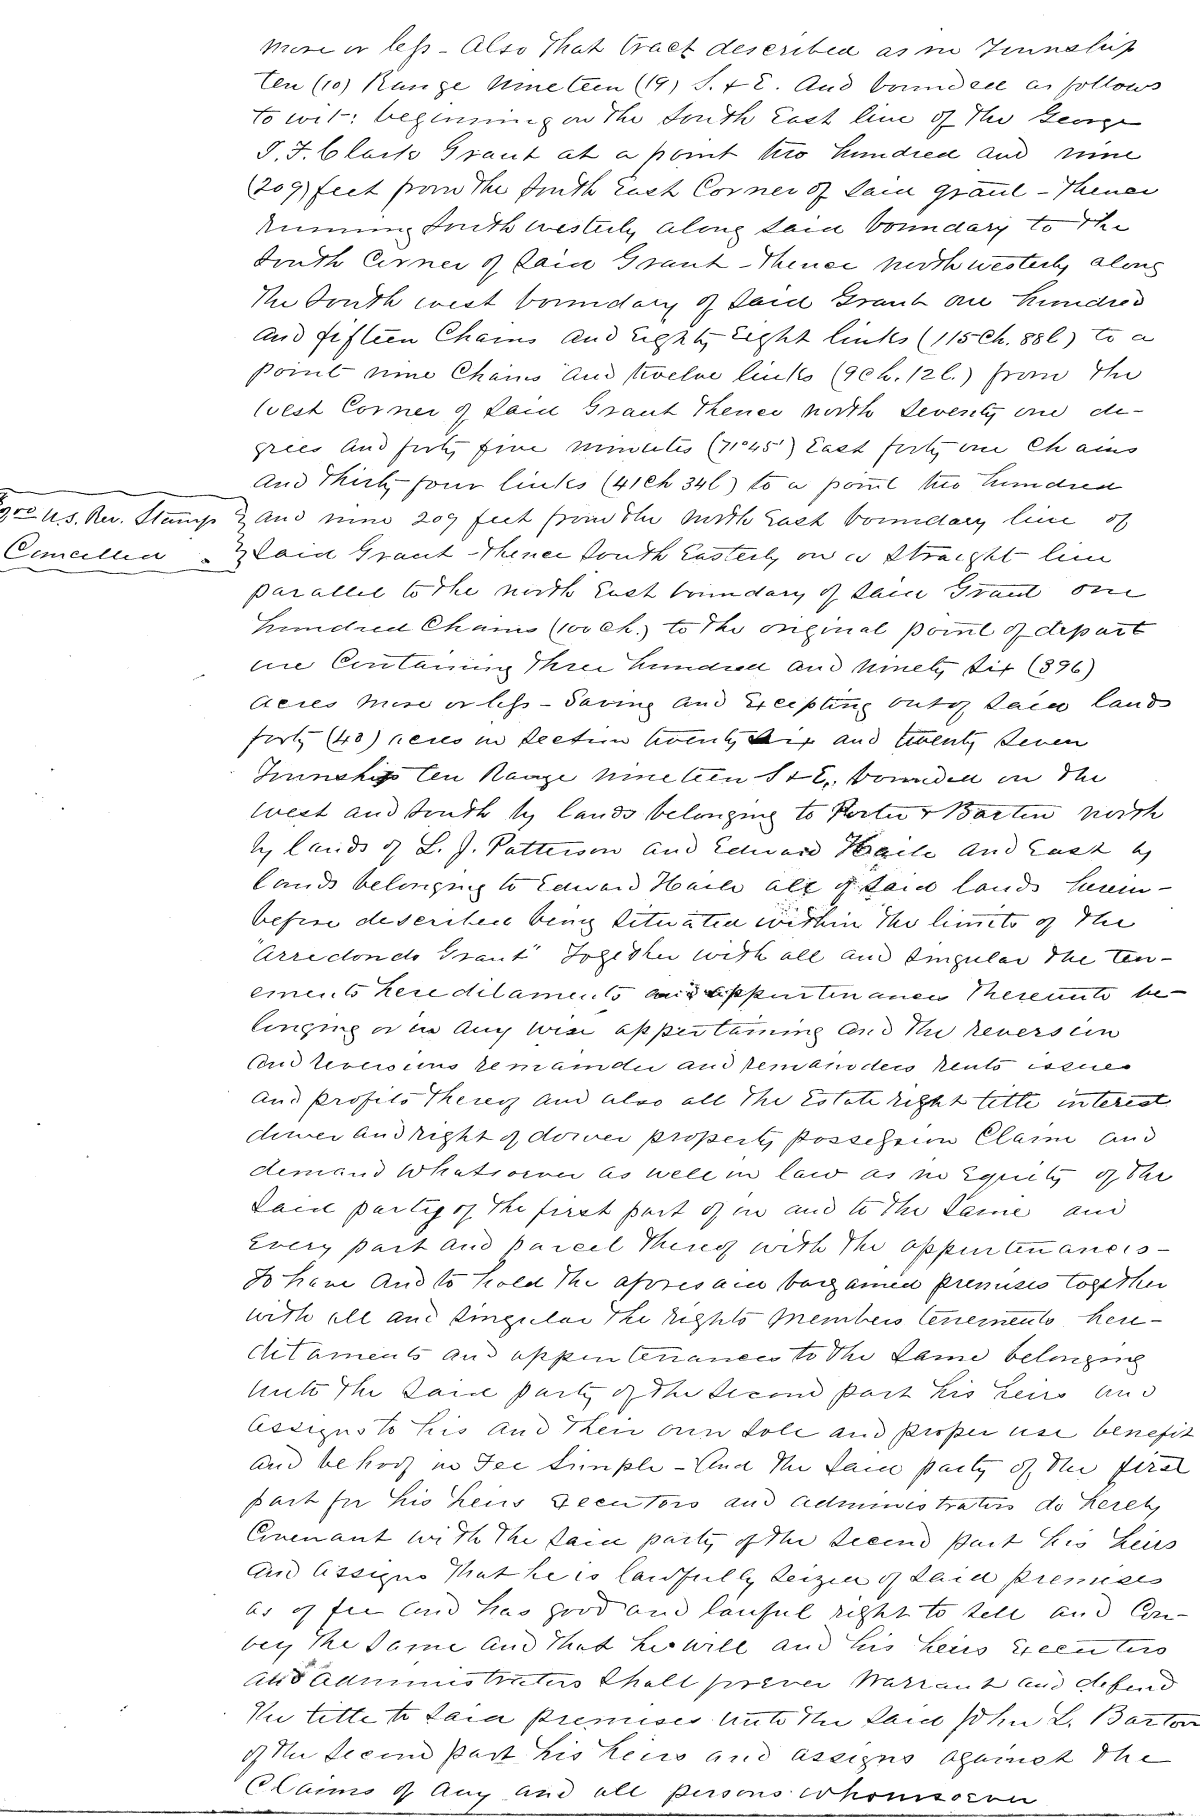 more or less - Also That tract described as in Township
ten (10) Range nineteen (19) S. & E. And bounded as follows
to wit: beginning on The South East line of The George
J. F. Clark Grant at a point two hundred and nine
(209) feet from The South East Corner of Said grant - Thence
running South westerly along said boundary to The
South Corner of Said Grant - Thence north westerly along
The South west boundary of Said Grant one hundred
and fifteen Chains and Eighty Eight links (115 Ch. 88 l) to a
point nine Chains and twelve links (9 Ch. 12 l.) from The
West Corner of Said Grant Thence north Seventy one de-
grees and forty five minutes (71°45') East forty one Chains
And Thirty four links (41 Ch 34 l) to a point two hundred
U.S. Rev. Stamp
Cancelled
and nine 209 feet from The North East boundary line of
Said Grant - Thence South Easterly on a Straight line
parallel to the north East boundary of Said Grant one
hundred Chains (100 Ch.) to The original point of depart
ure Containing Three hundred and ninety Six (396)
acres more or less - Saving and Excepting out of Said lands
forty (40) acres in Section twenty Six and twenty Seven
Township ten Range nineteen S & E. bounded on The
west and South by lands belonging to Porter & Barton north
by lands of L. J. Patterson and Edward Haile and East by
lands belonging to Edward Haile all of Said lands herein-
before described being Situated within The limits of The
"Arredondo Grant" Together with all and Singular The ten-
ements hereditaments and appurtenances Thereunto be-
longing or in any wise appertaining and The reversion
and reversions remainder and remainders rents issues
and profits Thereof and also all The Estate right title interest
dower and right of dower property possession Claim and
demand whatsoever as well in law as in Equity of The
Said party of The first part of in and to The Same and
Every part and parcel Thereof with The appurtenances -
To have and to hold The aforesaid bargained premises together
with all and Singular The rights members tenements here-
ditaments and appurtenances to The Same belonging
unto The Said party of The Second part his heirs and
assigns to his and Their own Sole and proper use benefit
and behoof in Fee Simple - And The Said party of The first
part for his heirs Executors and administrators do hereby
Covenant with The Said party of The Second part his heirs
and assigns That he is lawfully Seized of Said premises
as of fee and has good and lawful right to Sell and Con-
vey The Same and That he will and his heirs Executors
and administrators Shall forever Warrant and defend
The title to Said premises unto The Said John L. Barton
of The Second part his heirs and assigns against The
Claims of any and all persons whomsoever